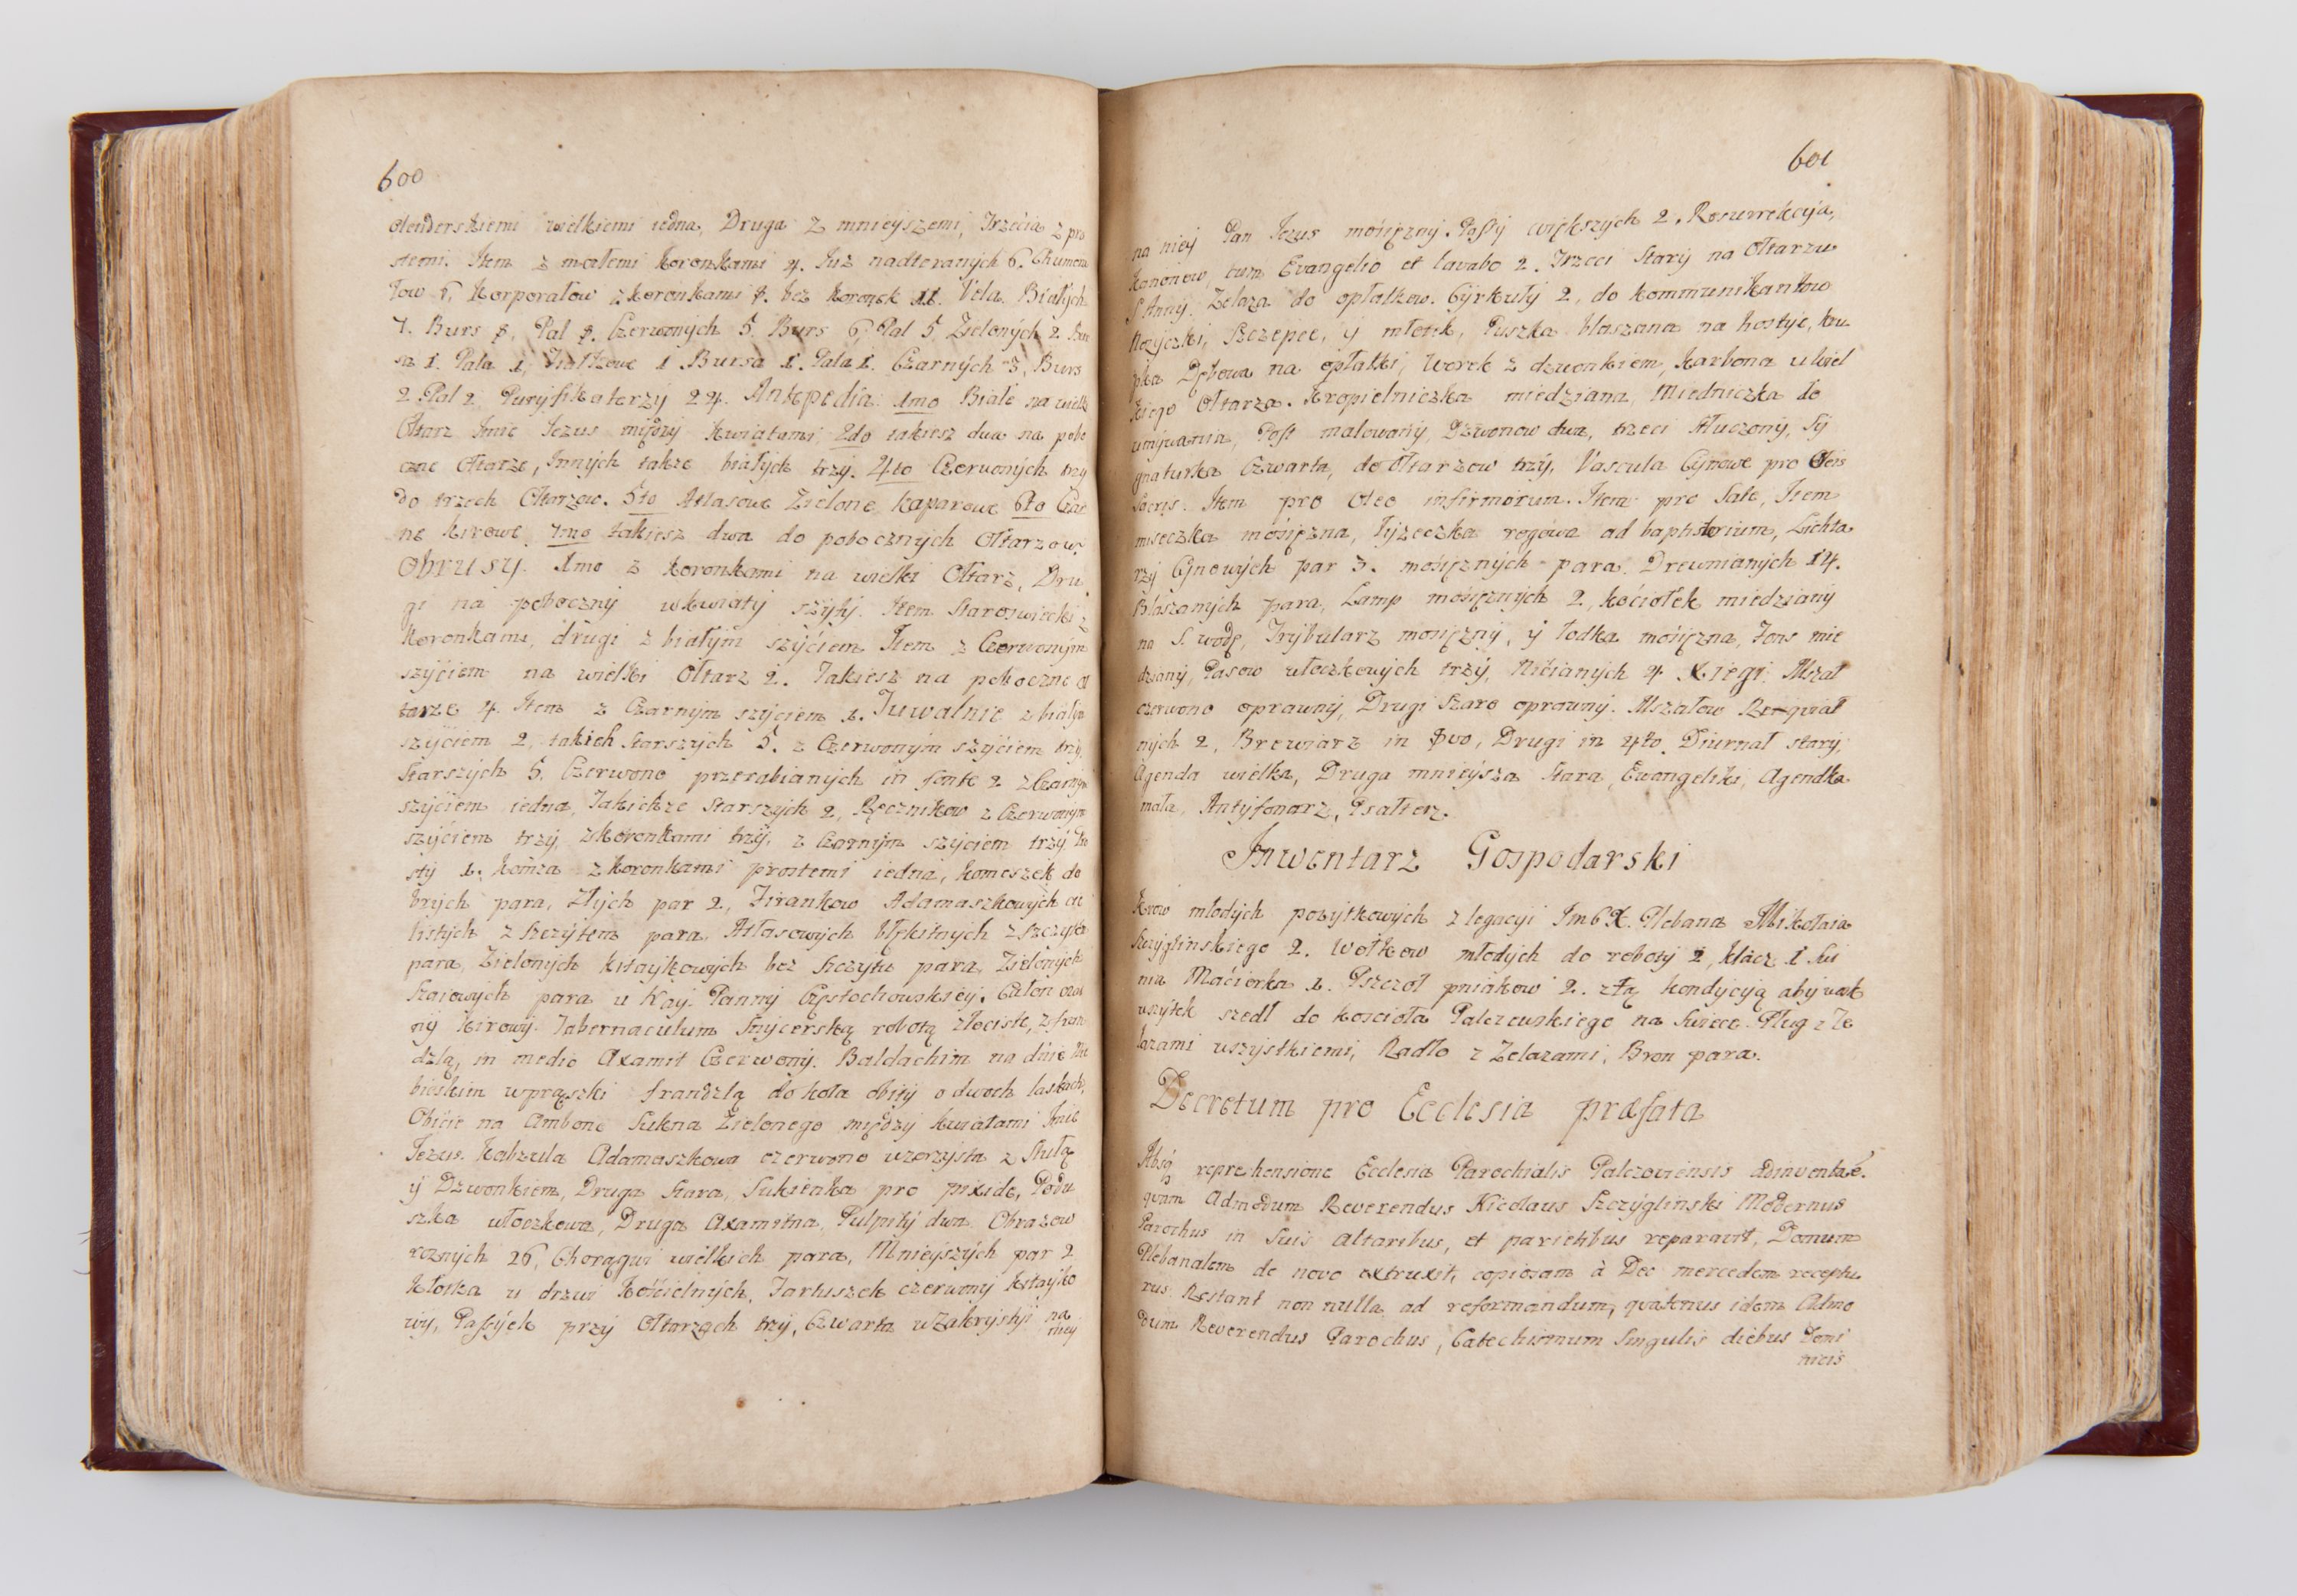 600
olenderskiemi wielkiemi iedna, Druga z mnieyszemi, Trzecia z pro
stemi. Item z małemi koronkami 4. Iuż nadteranych 6. Chumera
łow 6, Korporałow z koronkami 8. bez koronek 11. Vela. Białych
7. Burs 8, Pal 8. Czerwonych 5. Burs 6, Pal 5, Zielonych 2. Bur
sa 1. Pala 1, Fiałkowe 1 Bursa 1. Pala 1. Czarnych 3, Burs
2 Pal 2 Puryfikaterzy 24. Antepedia. 1mo Białe na wielk
Ołtarz Imie Iezus między kwiatami, 2do takiesz dwa na pobo
czne Ołtarze, Innych także białych trzy. 4to Czerwonych trzy
do trzech Ołtarzow. 5to Atlasowe Zielone kaparowe 6to Czar
ne kirowe. 7mo takiesz dwa do pobocznych Ołtarzow.
Obrusy. 1mo z koronkami na wielki Ołtarz, Dru
gi na poboczny wkwiaty szyty. Item Staroswiecki z
koronkami, drugi z białym szyćiem Item z Czerwonym
szyćiem na wielki Ołtarz 2. Takiesz na poboczne oł
tarze 4. Item z Czarnym szyćiem 1. Tuwalnie z białym
szyćiem 2, takich starszych 5. z Czerwonym szyćiem trzy,
Starszych 5. Czerwono przerabianych in fonte 2 z Czarnym
szyćiem iedna, Takichże starszych 2, Ręcznikow z Czerwonym
szyćiem trzy, z koronkami trzy, z Czarnym szyćiem trzy
sty 1. komza z koronkami prostemi iedna, komeszek do
brych para, Złych par 2, Firankow Adamaszkowych
listych z szczytem para, Atlasowych błękitnych z szczytem
para, Zielonych kitaykowych bez szczytu para, Zielonych
Szaiowych para u Nay: Panny Częstochowskiey. Całon czar
ny kirowy. Tabernaculum Snycerską robotą złociste, z fran
dzlą, in medio Axamit Czerwony. Baldachim na dnie Nie
bieskim wprąszki frandzlą do koła obity o dwoch laskach,
Obicie na Ambone Sukna Zielonego między kwiatami Imie
Iezus. Kabzula Adamaszkowa czerwono wzorzysta z Stułą
y Dzwonkiem, Druga Stara, Sukienka pro pixide, Podu
szka włoczkowa, Druga Axamitna, Pulpity dwa. Obrazow
roznych 26, Chorągwi wielkich para, Mnieyszych par 2
Kłotka u drzwi Kościelnych, Fartuszek czerwony kitayko
wy, Passyek przy Ołtarzach trzy, Czwarta w Zakrystyi na
niey
601
na niey Pan Iezus mosiężny. Passy większych 2. Resurrekcyja,
Kanonow, cum Evangelio et lavabo 2. Trzeci Stary na Ołtarzu
S Anny. Zelaza do opłatkow. Cyrkuły 2, do kommunikantow
Nozyczki, Szczepce, y młotek, Puszka blaszana na hostye, kru
pka Dębowa na opłatki, Worek z dzwonkiem, karbona u wiel
kiego Ołtarza. Kropielniczka miedziana, Miedniczka do
umywania, Post malowany, Dzwonow dwa, trzeci stłuczony, Sy
gnaturka Czwarta, do Ołtarzow trzy, Vascula Cynowe pro Oleis
Sacris. Item pro Oleo infirmorum. Item pro Sale, Item
miseczka mosiężna, łyzeczka rogowa ad baptisterium, Lichta
rzy Cynowych par 3. mosiężnych para. Drewnianych 14.
Blaszanych para, Lamp mosiężnych 2, kociołek miedziany
na S. wodę, Trybularz mosiężny, y łodka mosiężna, Fons mie
dziany, Pasow włoczkowych trzy, Nicianych 4 Xięgi: Mszał
czerwono oprawny, Drugi szaro oprawny. Mszałow Requiał
nych 2, Brewiarz in 8vo, Drugi in 4to. Diurnał stary,
Agenda wielka, Druga mnieysza stara, Ewangeliki, Agendka
mała, Antyfonarz, Psałterz.
Inwentarz Gospodarski
Krow młodych pozytkowych z legacyi ImCX. Plebana Mikołaia
Szczyglinskiego 2. Wołkow młodych do roboty 2, klacz 1 Swi
nia Maciorka 1. Pszczoł pniakow 2. z tą kondycyą aby wosk
wszytek szedł do kosciola Palczewskiego na Swiece. Pług z Ze
lazami wszystkiemi, Radło z Zelazami, Bron para.
Decretum pro Ecclesia præfata
Absq reprehensione Ecclesia Parochialis Palczoviensis adinventa é.
quam Admodum Reverendus Nicolaus Szczyglinski Modernus
Parochus in Suis Altaribus, et parietibus reparavit, Domum
Plebanalem de novo extruxit, copiosam à Deo mercedem receptu
rus. Restant non nulla ad reformandum, quatenus idem Admo
dum Reverendus Parochus, Catechismum Singulis diebus Domi
nicis